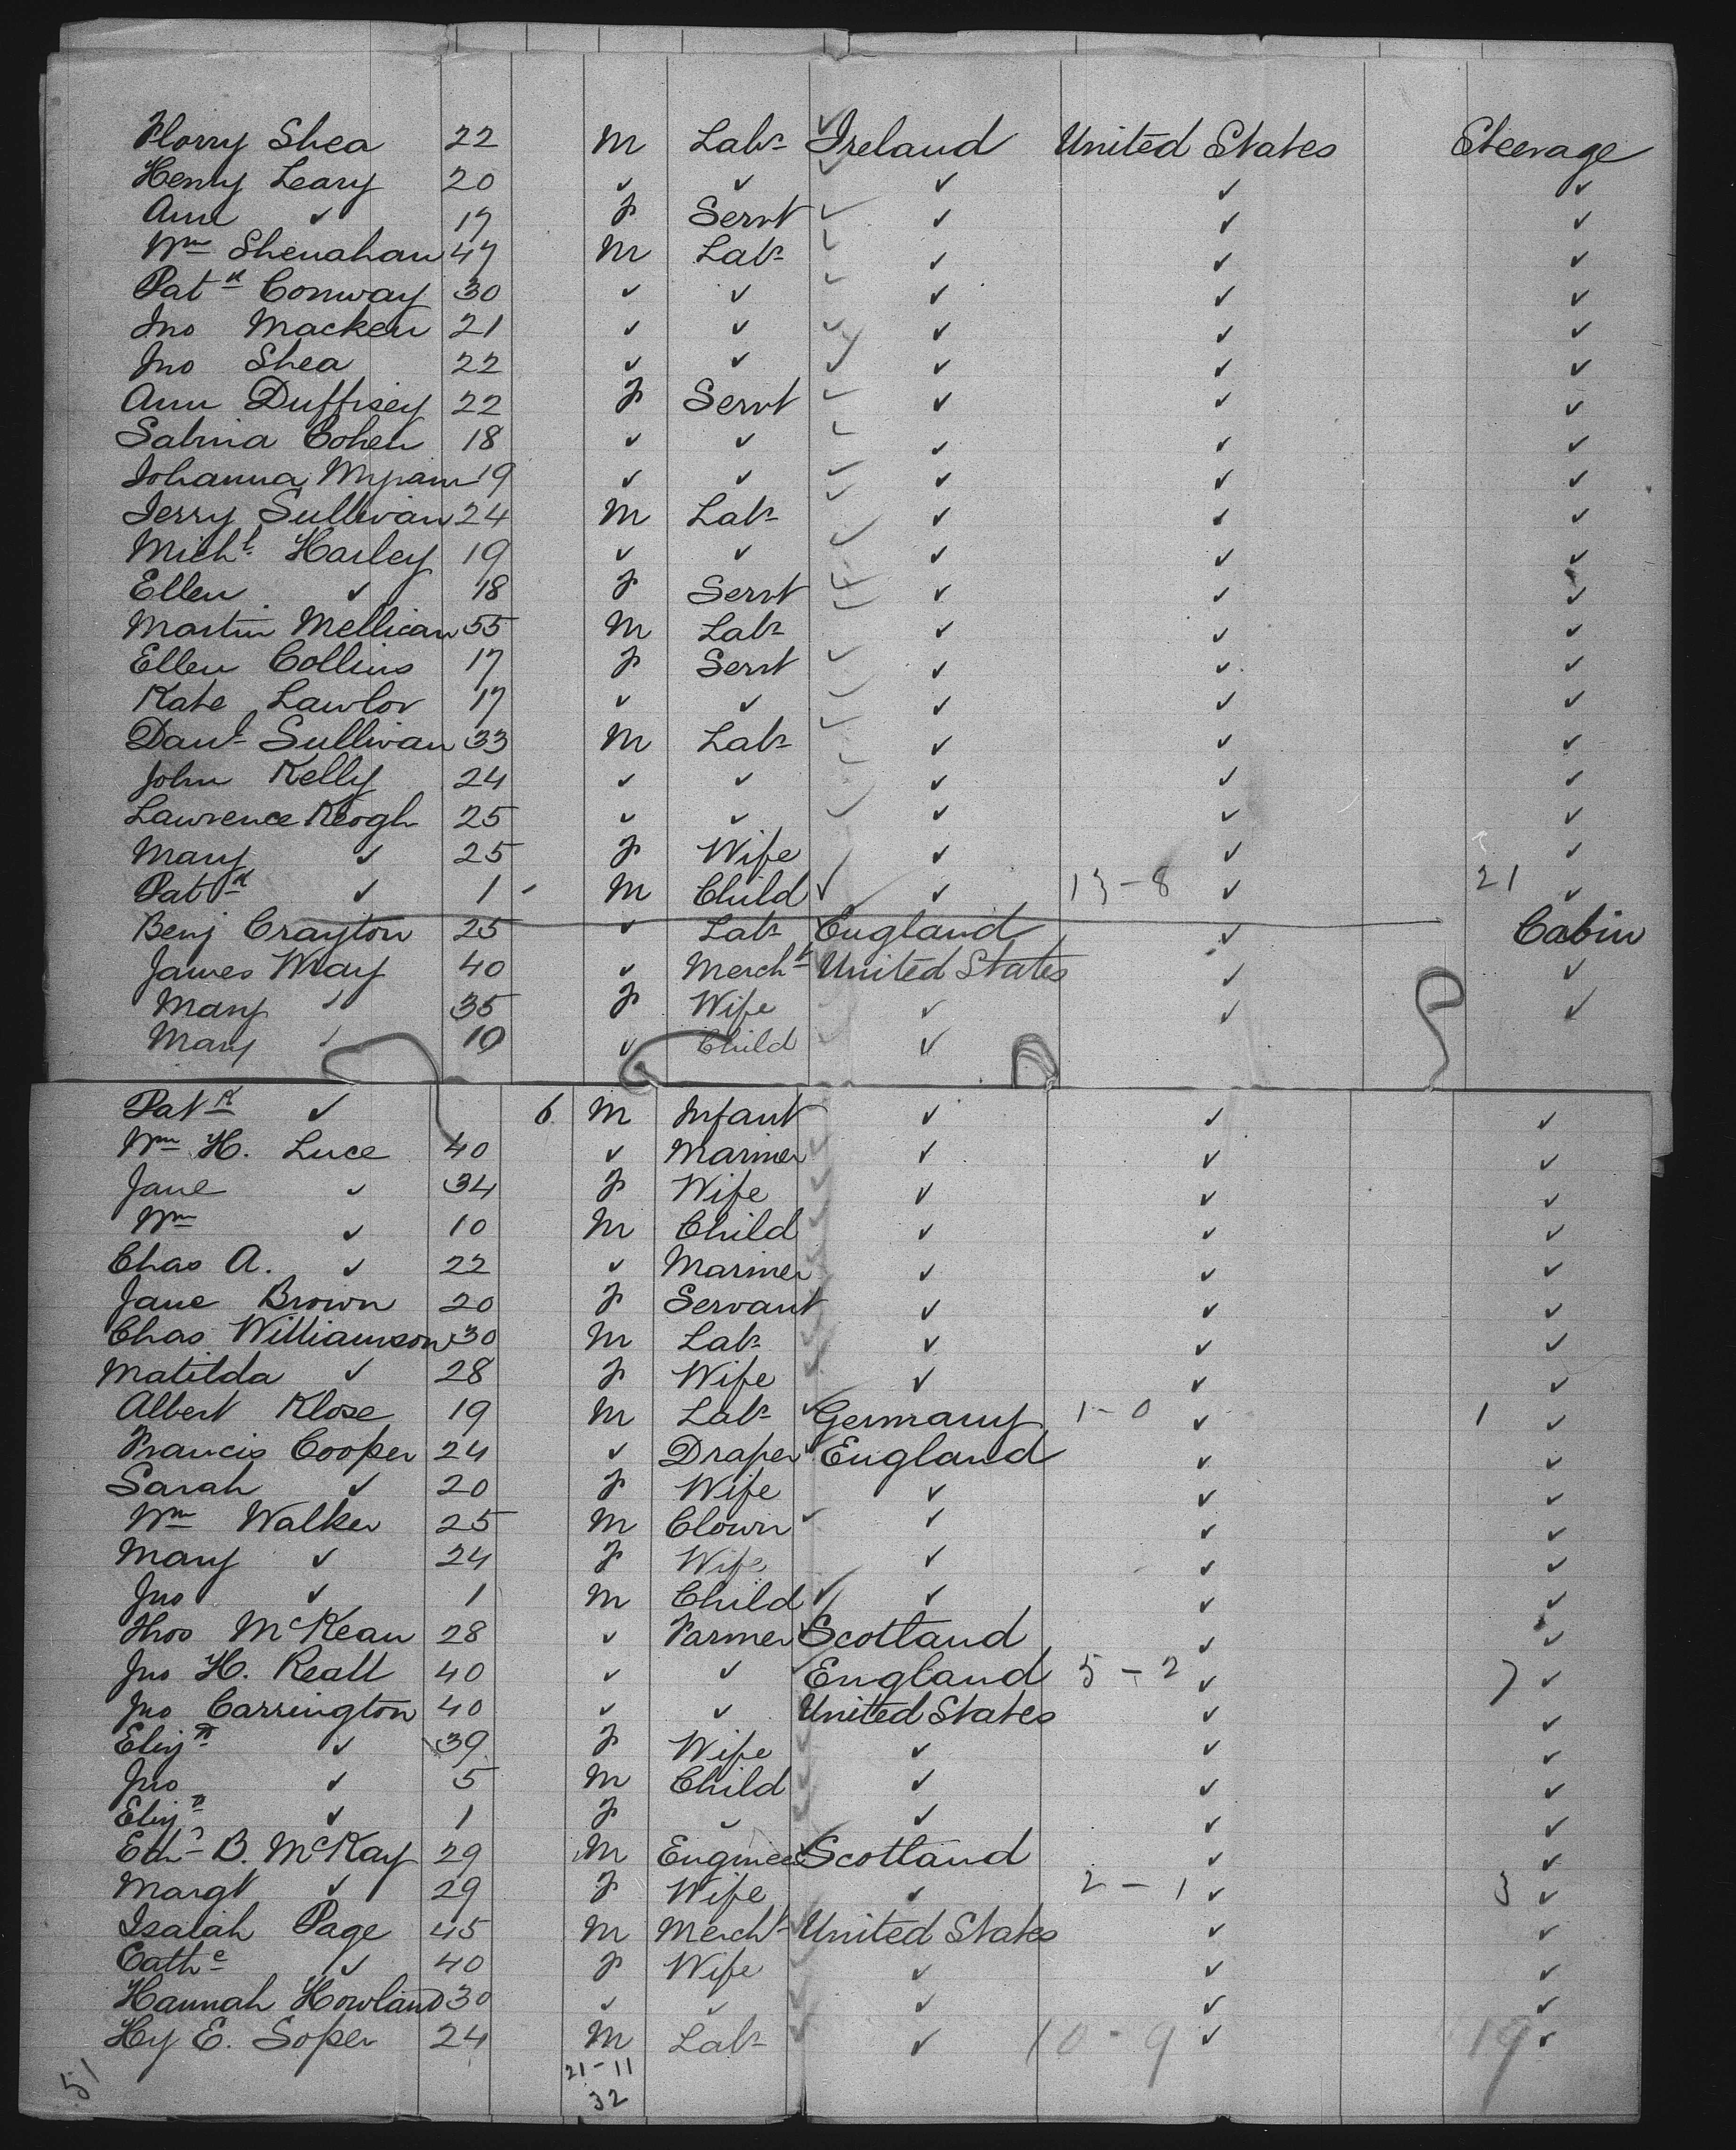 Florry Shea 22 M Labr ✓ Ireland United States Steerage
Henry Leary 20 ✓ ✓ ✓ ✓ ✓ ✓
Ann ✓ 17 F Servt ✓ ✓ ✓ ✓
Wm Shenahan 47 M Labr ✓ ✓ ✓ ✓
Patk Conway 30 ✓ ✓ ✓ ✓ ✓ ✓
Jno Macken 21 ✓ ✓ ✓ ✓ ✓ ✓
Jno Shea 22 ✓ ✓ ✓ ✓ ✓ ✓
Ann Duffisey 22 F Servt ✓ ✓ ✓ ✓
Sabina Cohen 18 ✓ ✓ ✓ ✓ ✓ ✓
Johanna 19 ✓ ✓ ✓ ✓ ✓ ✓
Jerry Sullivan 24 M Labr ✓ ✓ ✓ ✓
Michl Harley 19 ✓ ✓ ✓ ✓ ✓ ✓
Ellen ✓ 18 F Servt ✓ ✓ ✓ ✓
Martin Mellican 55 M Labr ✓ ✓ ✓ ✓
Ellen Collins 17 F Servt ✓ ✓ ✓ ✓
Kate Lawlor 17 ✓ ✓ ✓ ✓ ✓ ✓
Danl Sullivan 33 M Labr ✓ ✓ ✓ ✓
John Kelly 24 ✓ ✓ ✓ ✓ ✓ ✓
Lawrence Keogh 25 ✓ ✓ ✓ ✓ ✓ ✓
Mary ✓ 25 F Wife ✓ ✓ ✓
Patk ✓ 1 - M Child ✓ ✓ 13-8 ✓ 21 ✓
Benj Crayton 25 ✓ Labr England ✓ Cabin
James Way 40 ✓ Mercht United States ✓ ✓
Mary ✓ 35 F Wife ✓ ✓ ✓
Mary ✓ 10 ✓ Child ✓
Patk ✓ 6 M Infant ✓ ✓ ✓
Wm H. Luce 40 ✓ Mariner ✓ ✓ ✓ ✓
Jane ✓ 34 F Wife ✓ ✓ ✓ ✓
Wm ✓ 10 M Child ✓ ✓ ✓ ✓
Chas A. ✓ 22 ✓ Mariner ✓ ✓ ✓
Jane Brown 20 F Servant ✓ ✓ ✓
Chas Williamson 30 M Labr ✓ ✓ ✓ ✓
Matilda ✓ 28 F Wife ✓ ✓ ✓ ✓
Albert Klose 19 M Labr ✓ Germany 1-0 ✓ 1 ✓
Francis Cooper 24 ✓ Draper ✓ England ✓ ✓
Sarah ✓ 20 F Wife ✓ ✓ ✓
Wm Walker 25 M Clown ✓ ✓ ✓ ✓
Mary ✓ 24 F Wife ✓ ✓ ✓
Jno ✓ 1 M Child ✓ ✓ ✓ ✓
Thos McKean 28 ✓ Farmer Scotland ✓ ✓
Jno H. Reall 40 ✓ ✓ England 5-2 ✓ 7 ✓
Jno Carrington 40 ✓ ✓ United States ✓ ✓
Elizth ✓ 39 F Wife ✓ ✓ ✓ ✓
Jno ✓ 5 M Child ✓ ✓ ✓ ✓
Elizth ✓ 1 F ✓ ✓ ✓ ✓ ✓
Edw B. McKay 29 M Engineer Scotland ✓ ✓
Margt ✓ 29 F Wife ✓ 2-1 ✓ 3 ✓
Isaiah Page 45 M Mercht ✓ United States ✓ ✓
Cathe ✓ 40 F Wife ✓ ✓ ✓ ✓
Hannah Howland 30 ✓ ✓ ✓ ✓ ✓ ✓
Hy E. Soper 24 M Labr ✓ ✓ 10-9 ✓ 19 ✓
21-11
32
51